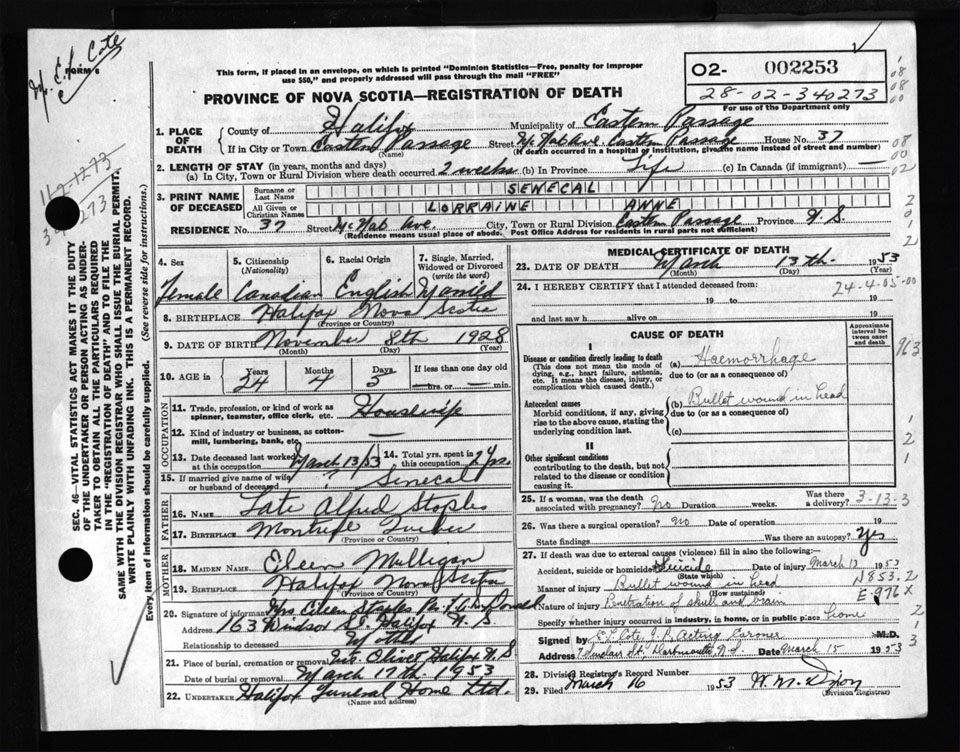 M. E. L. Cote
FORM 6
This form, if placed in an envelope, on which is printed "Dominion Statistics—Free, penalty for improper
use $50," and properly addressed will pass through the mail "FREE"
02- 002253
28-02-340273
For use of the Department only
PROVINCE OF NOVA SCOTIA—REGISTRATION OF DEATH
1. PLACE OF DEATH
County of Halifax Municipality of Eastern Passage
If in City or Town Eastern Passage Street McNab Ave. Eastern Passage House No. 37
(Name) (If death occurred in a hospital or institution, give the name instead of street and number)
2. LENGTH OF STAY (in years, months and days)
(a) In City, Town or Rural Division where death occurred 2 weeks (b) In Province Life (c) In Canada (if immigrant) —
3. PRINT NAME OF DECEASED
Surname or Last Name SENECAL
All Given or Christian Names LORRAINE ANNE
RESIDENCE No. 37 Street McNab Ave. City, Town or Rural Division Eastern Passage Province N.S.
(Residence means usual place of abode. Post Office Address for residents in rural parts not sufficient)
4. Sex 5. Citizenship (Nationality) 6. Racial Origin 7. Single, Married, Widowed or Divorced (write the word)
Female Canadian English Married
8. BIRTHPLACE Halifax Nova Scotia
(Province or Country)
9. DATE OF BIRTH November 8th 1928
(Month) (Day) (Year)
10. AGE in Years Months Days If less than one day old
24 4 5 hrs. or min.
OCCUPATION
11. Trade, profession, or kind of work as spinner, teamster, office clerk, etc. Housewife
12. Kind of industry or business, as cotton-mill, lumbering, bank, etc. —
13. Date deceased last worked at this occupation March 13/53 14. Total yrs. spent in this occupation 2 yrs.
15. If married give name of wife or husband of deceased Senecal
FATHER
16. NAME Late Alfred Staples
17. BIRTHPLACE Quebec
(Province or Country)
MOTHER
18. MAIDEN NAME Eileen Mulligan
19. BIRTHPLACE Halifax Nova Scotia
(Province or Country)
20. Signature of informant Mrs Eileen Staples
Address 163 Windsor St. Halifax N.S.
Relationship to deceased Mother
21. Place of burial, cremation or removal Mt. Olivet Halifax N.S
Date of burial or removal March 17th. 1953
22. UNDERTAKER Halifax Funeral Home Ltd.
(Name and address)
MEDICAL CERTIFICATE OF DEATH
23. DATE OF DEATH March 13th. 1953
(Month) (Day) (Year)
24. I HEREBY CERTIFY that I attended deceased from:
24-4-05-00
19 to 19
and last saw h alive on 19
CAUSE OF DEATH
Approximate interval between onset and death
I
Disease or condition directly leading to death (a) Haemorrhage
(This does not mean the mode of dying, e.g., heart failure, asthenia, etc. It means the disease, injury, or complication which caused death.)
due to (or as a consequence of)
Antecedent causes (b) Bullet wound in head
Morbid conditions, if any, giving rise to the above cause, stating the underlying condition last.
due to (or as a consequence of)
(c)
II
Other significant conditions contributing to the death, but not related to the disease or condition causing it.
963
25. If a woman, was the death associated with pregnancy? No Duration weeks. Was there a delivery? 3-13-3
26. Was there a surgical operation? No Date of operation 19
State findings Was there an autopsy? Yes
27. If death was due to external causes (violence) fill in also the following:—
Accident, suicide or homicide? Suicide Date of injury March 13 1953
(State which)
Manner of injury Bullet wound in head N853.2
(How sustained)
Nature of injury Penetration of skull and brain E-976X
Specify whether injury occurred in industry, in home, or in public place home
Signed by E L Cote, J.P. Acting Coroner M.D.
Address Dartmouth, N.S. Date March 15 1953
28. Division Registrar's Record Number
29. Filed March 16 1953 W. M. Dixon
(Division Registrar)
SEC. 46—VITAL STATISTICS ACT MAKES IT THE DUTY
OF THE UNDERTAKER OR PERSON ACTING AS UNDER-
TAKER TO OBTAIN ALL THE PARTICULARS REQUIRED
IN THE "REGISTRATION OF DEATH" AND TO FILE THE
SAME WITH THE DIVISION REGISTRAR WHO SHALL ISSUE THE BURIAL PERMIT.
WRITE PLAINLY WITH UNFADING INK. THIS IS A PERMANENT RECORD.
Every item of information should be carefully supplied. (See reverse side for instructions.)